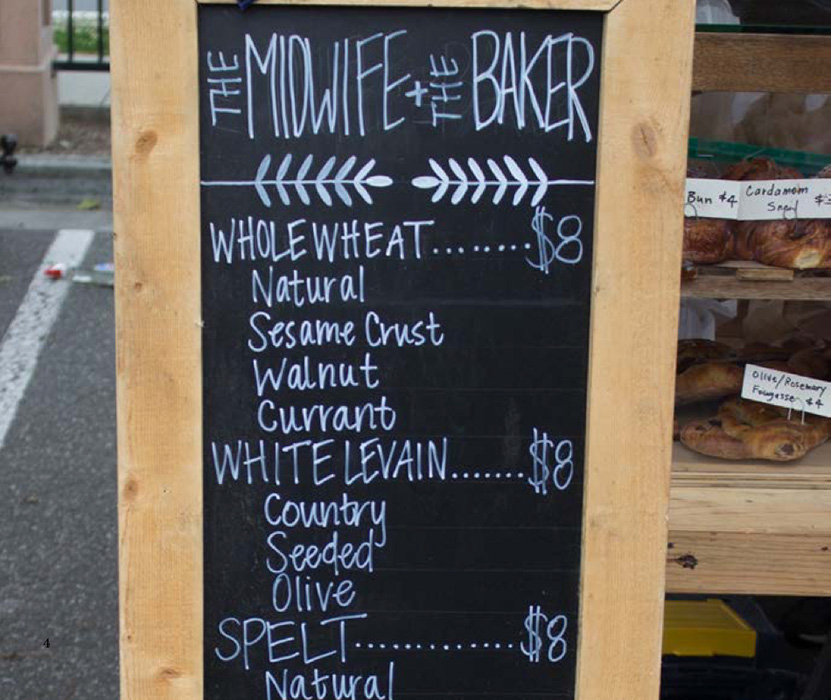 THE MIDWIFE + THE BAKER
WHOLE WHEAT........$8
Natural
Sesame Crust
Walnut
Currant
WHITE LEVAIN.......$8
Country
Seeded
Olive
SPELT.............$8
Natural
Bun $4
Cardamom
Snail
Olive/Rosemary
Fougasse $4
4